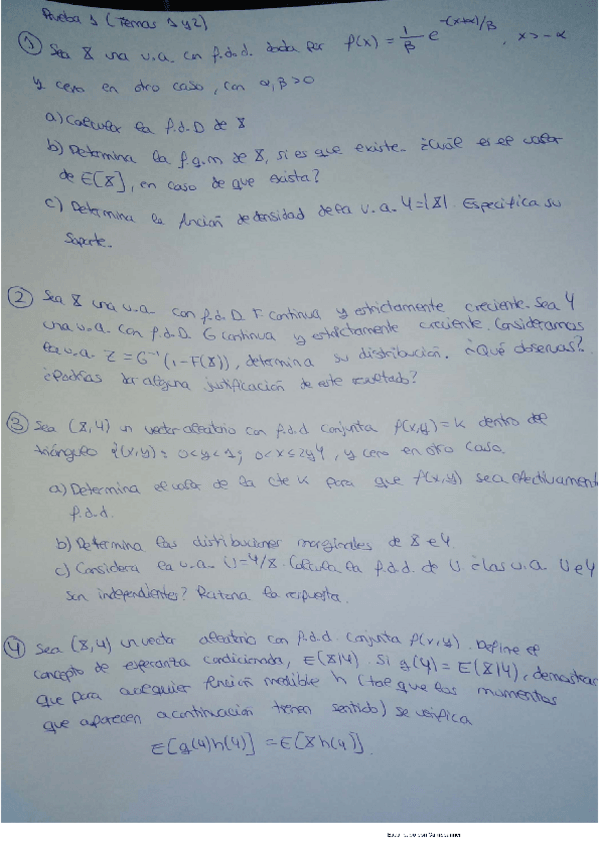 Prueba 1 (Temas 1 y 2)
① Sea X una v.a. con f.d.d. dada por f(x) = 1/β e^{-(x+α)/β}, x > -α
y cero en otro caso, con α, β > 0
a) Calcular la f.d.D de X
b) Determina la f.g.m de X, si es que existe. ¿Cuál es el valor
de E[X], en caso de que exista?
c) Determina la función de densidad de la v.a. Y = |X|. Especifica su
soporte.
② Sea X una v.a. con f.d.D. F continua y estrictamente creciente. Sea Y
una v.a. con f.d.D. G continua y estrictamente creciente. Consideramos
la v.a. Z = G⁻¹(1-F(X)), determina su distribución. ¿Qué observas?
¿Podrías dar alguna justificación de este resultado?
③ Sea (X,Y) un vector aleatorio con f.d.d conjunta f(x,y) = k dentro del
triángulo {(x,y): 0<y<1; 0<x≤2y}, y cero en otro caso.
a) Determina el valor de la cte k para que f(x,y) sea efectivamente
f.d.d.
b) Determina las distribuciones marginales de X e Y.
c) Considera la v.a. U = Y/X. Calcula la f.d.d. de U. ¿las v.a. U e Y
son independientes? Razona la respuesta.
④ Sea (X,Y) un vector aleatorio con f.d.d. conjunta f(x,y). Define el
concepto de esperanza condicionada, E(X|Y). Si g(Y) = E(X|Y), demostrar
que para cualquier función medible h (tal que los momentos
que aparecen a continuación tienen sentido) se verifica
E[g(Y)h(Y)] = E[X h(Y)].